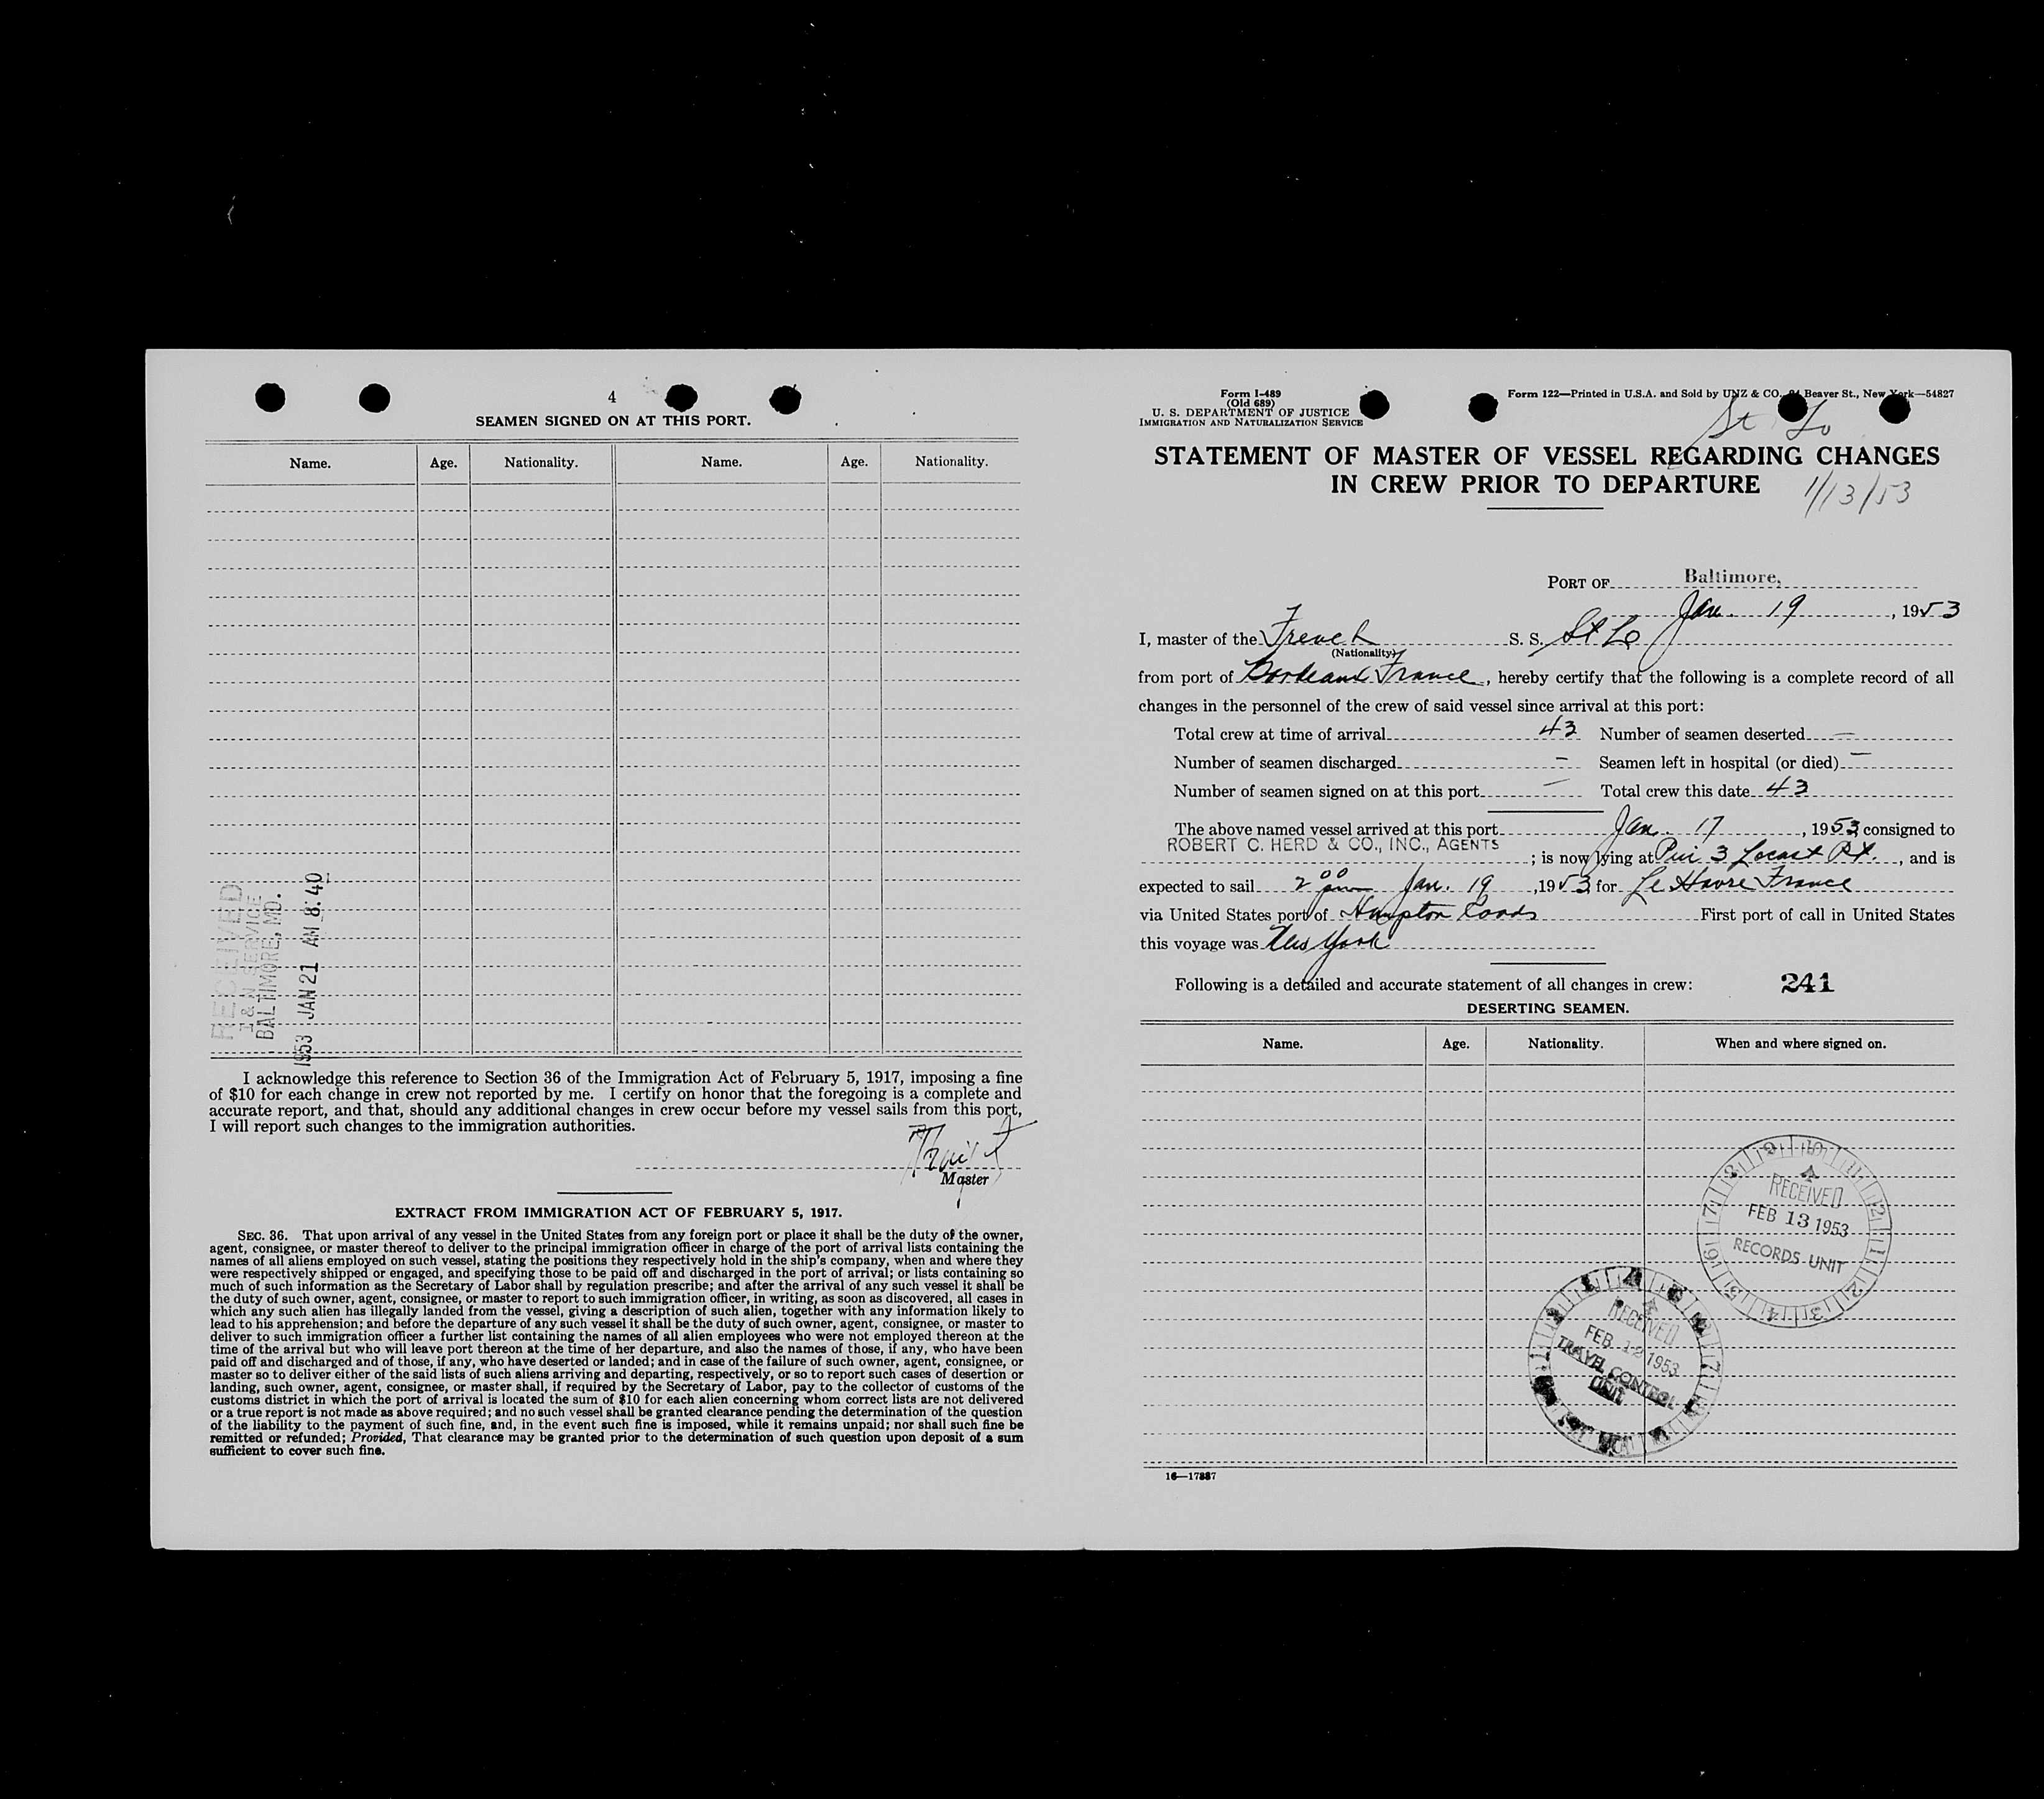 4
SEAMEN SIGNED ON AT THIS PORT.
Name. Age. Nationality. Name. Age. Nationality.
RECEIVED
I & N SERVICE
BALTIMORE, MD.
1953 JAN 21 AM 8:40
I acknowledge this reference to Section 36 of the Immigration Act of February 5, 1917, imposing a fine
of $10 for each change in crew not reported by me. I certify on honor that the foregoing is a complete and
accurate report, and that, should any additional changes in crew occur before my vessel sails from this port,
I will report such changes to the immigration authorities.
Master
EXTRACT FROM IMMIGRATION ACT OF FEBRUARY 5, 1917.
SEC. 36. That upon arrival of any vessel in the United States from any foreign port or place it shall be the duty of the owner,
agent, consignee, or master thereof to deliver to the principal immigration officer in charge of the port of arrival lists containing the
names of all aliens employed on such vessel, stating the positions they respectively hold in the ship's company, when and where they
were respectively shipped or engaged, and specifying those to be paid off and discharged in the port of arrival; or lists containing so
much of such information as the Secretary of Labor shall by regulation prescribe; and after the arrival of any such vessel it shall be
the duty of such owner, agent, consignee, or master to report to such immigration officer, in writing, as soon as discovered, all cases in
which any such alien has illegally landed from the vessel, giving a description of such alien, together with any information likely to
lead to his apprehension; and before the departure of any such vessel it shall be the duty of such owner, agent, consignee, or master to
deliver to such immigration officer a further list containing the names of all alien employees who were not employed thereon at the
time of the arrival but who will leave port thereon at the time of her departure, and also the names of those, if any, who have been
paid off and discharged and of those, if any, who have deserted or landed; and in case of the failure of such owner, agent, consignee, or
master so to deliver either of the said lists of such aliens arriving and departing, respectively, or so to report such cases of desertion or
landing, such owner, agent, consignee, or master shall, if required by the Secretary of Labor, pay to the collector of customs of the
customs district in which the port of arrival is located the sum of $10 for each alien concerning whom correct lists are not delivered
or a true report is not made as above required; and no such vessel shall be granted clearance pending the determination of the question
of the liability to the payment of such fine, and, in the event such fine is imposed, while it remains unpaid; nor shall such fine be
remitted or refunded; Provided, That clearance may be granted prior to the determination of such question upon deposit of a sum
sufficient to cover such fine.
Form I-489
(Old 689)
U. S. DEPARTMENT OF JUSTICE
IMMIGRATION AND NATURALIZATION SERVICE
Form 122—Printed in U.S.A. and Sold by UNZ & CO., Beaver St., New York—54827
St Lo
STATEMENT OF MASTER OF VESSEL REGARDING CHANGES
IN CREW PRIOR TO DEPARTURE
1/13/53
PORT OF Baltimore,
Jan. 19, 1953
I, master of the French S. S. St Lo
(Nationality)
from port of Bordeaux France, hereby certify that the following is a complete record of all
changes in the personnel of the crew of said vessel since arrival at this port:
Total crew at time of arrival 43 Number of seamen deserted —
Number of seamen discharged — Seamen left in hospital (or died) —
Number of seamen signed on at this port — Total crew this date 43
The above named vessel arrived at this port Jan. 17, 1953, consigned to
ROBERT C. HERD & CO., INC., AGENTS ; is now lying at Pier 3 Locust Pt., and is
expected to sail 2 00 pm Jan. 19, 1953, for Le Havre France
via United States port of Hampton Roads First port of call in United States
this voyage was New York
Following is a detailed and accurate statement of all changes in crew: 241
DESERTING SEAMEN.
Name. Age. Nationality. When and where signed on.
RECEIVED
FEB 13 1953
RECORDS UNIT
RECEIVED
FEB 12 1953
TRAVEL CONTROL
UNIT
16—17887